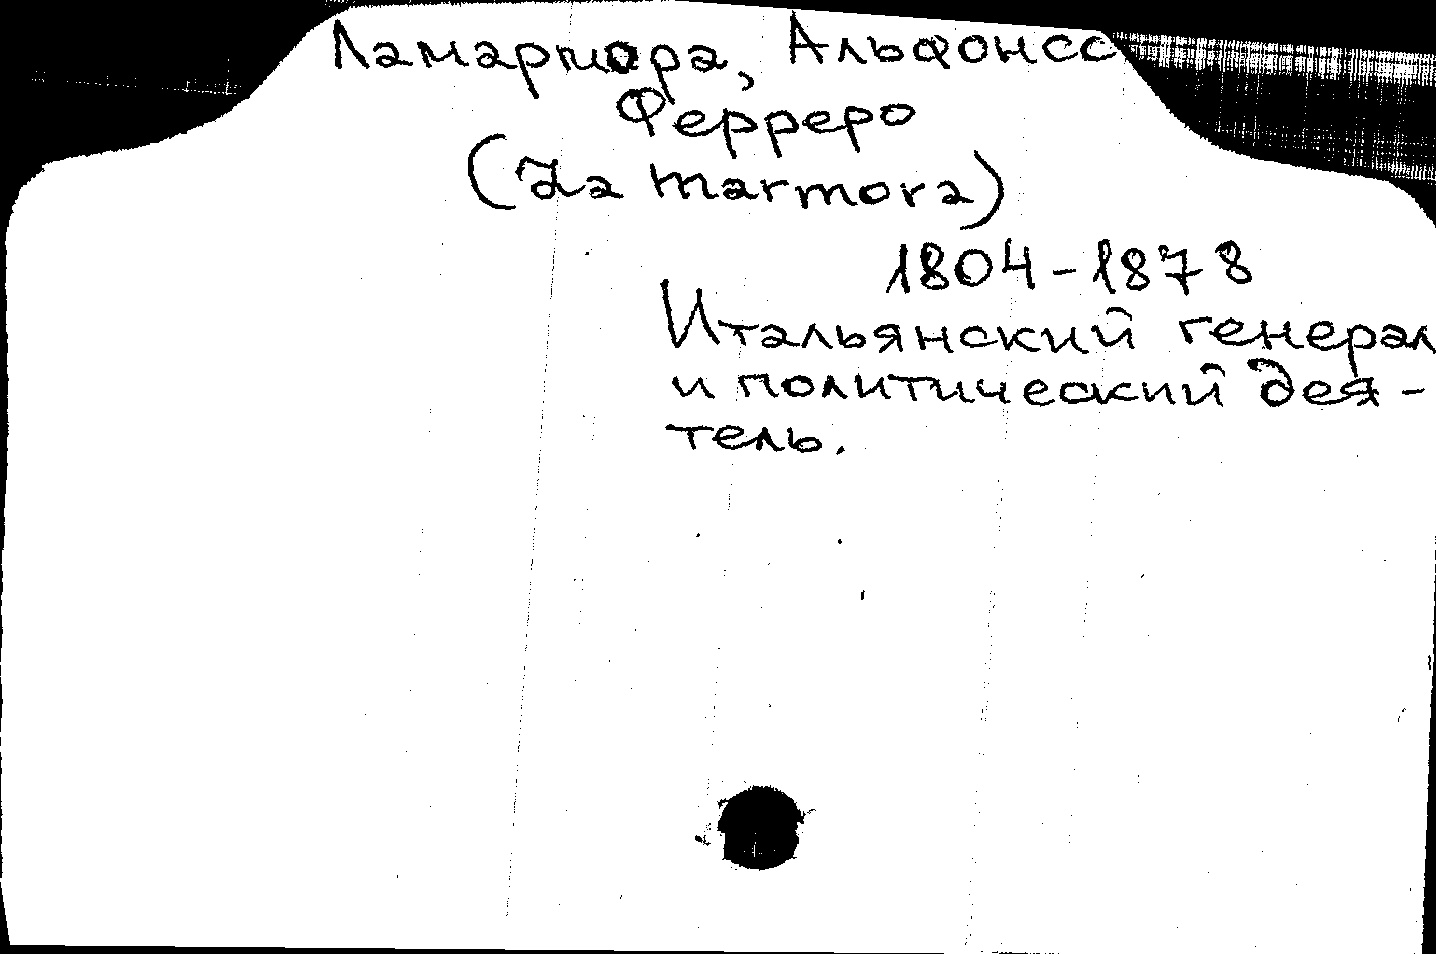 Ламармора, Альфонсо
Ферреро
(La Marmora)
1804-1878
Итальянский генерал
и политический дея-
тель.